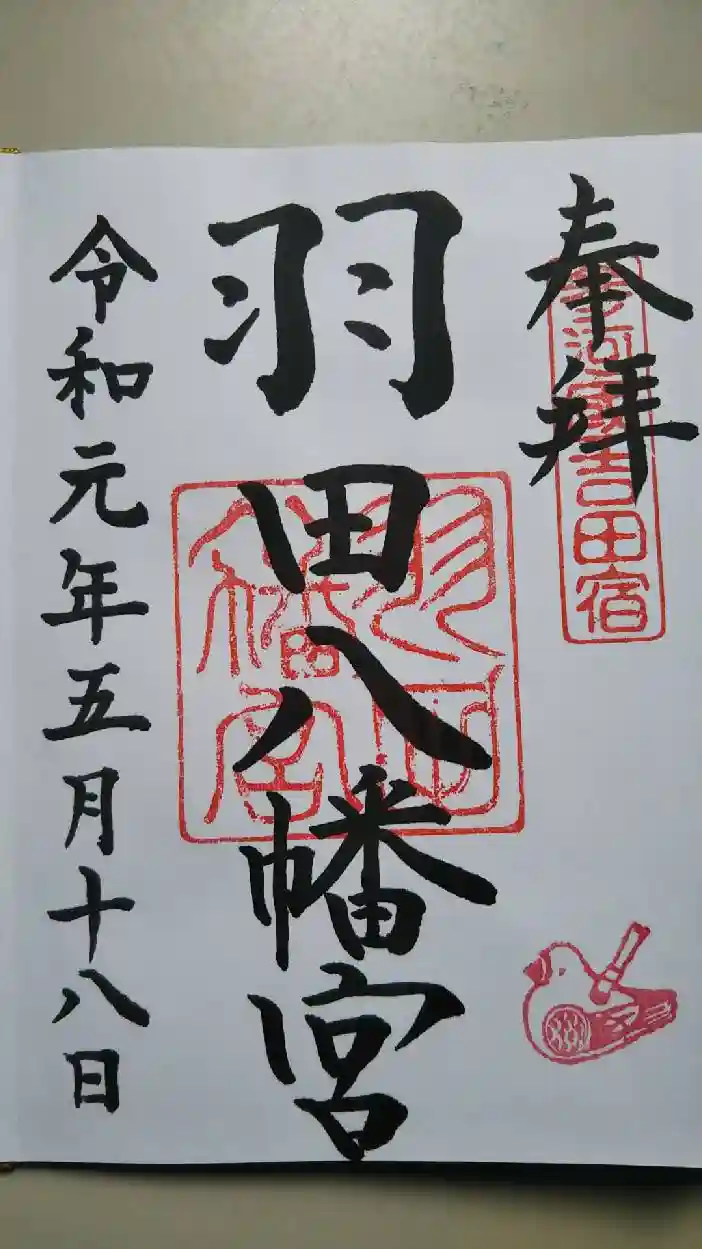 奉拝
三河国吉田宿
羽田八幡宮
羽田八幡宮
令和元年五月十八日